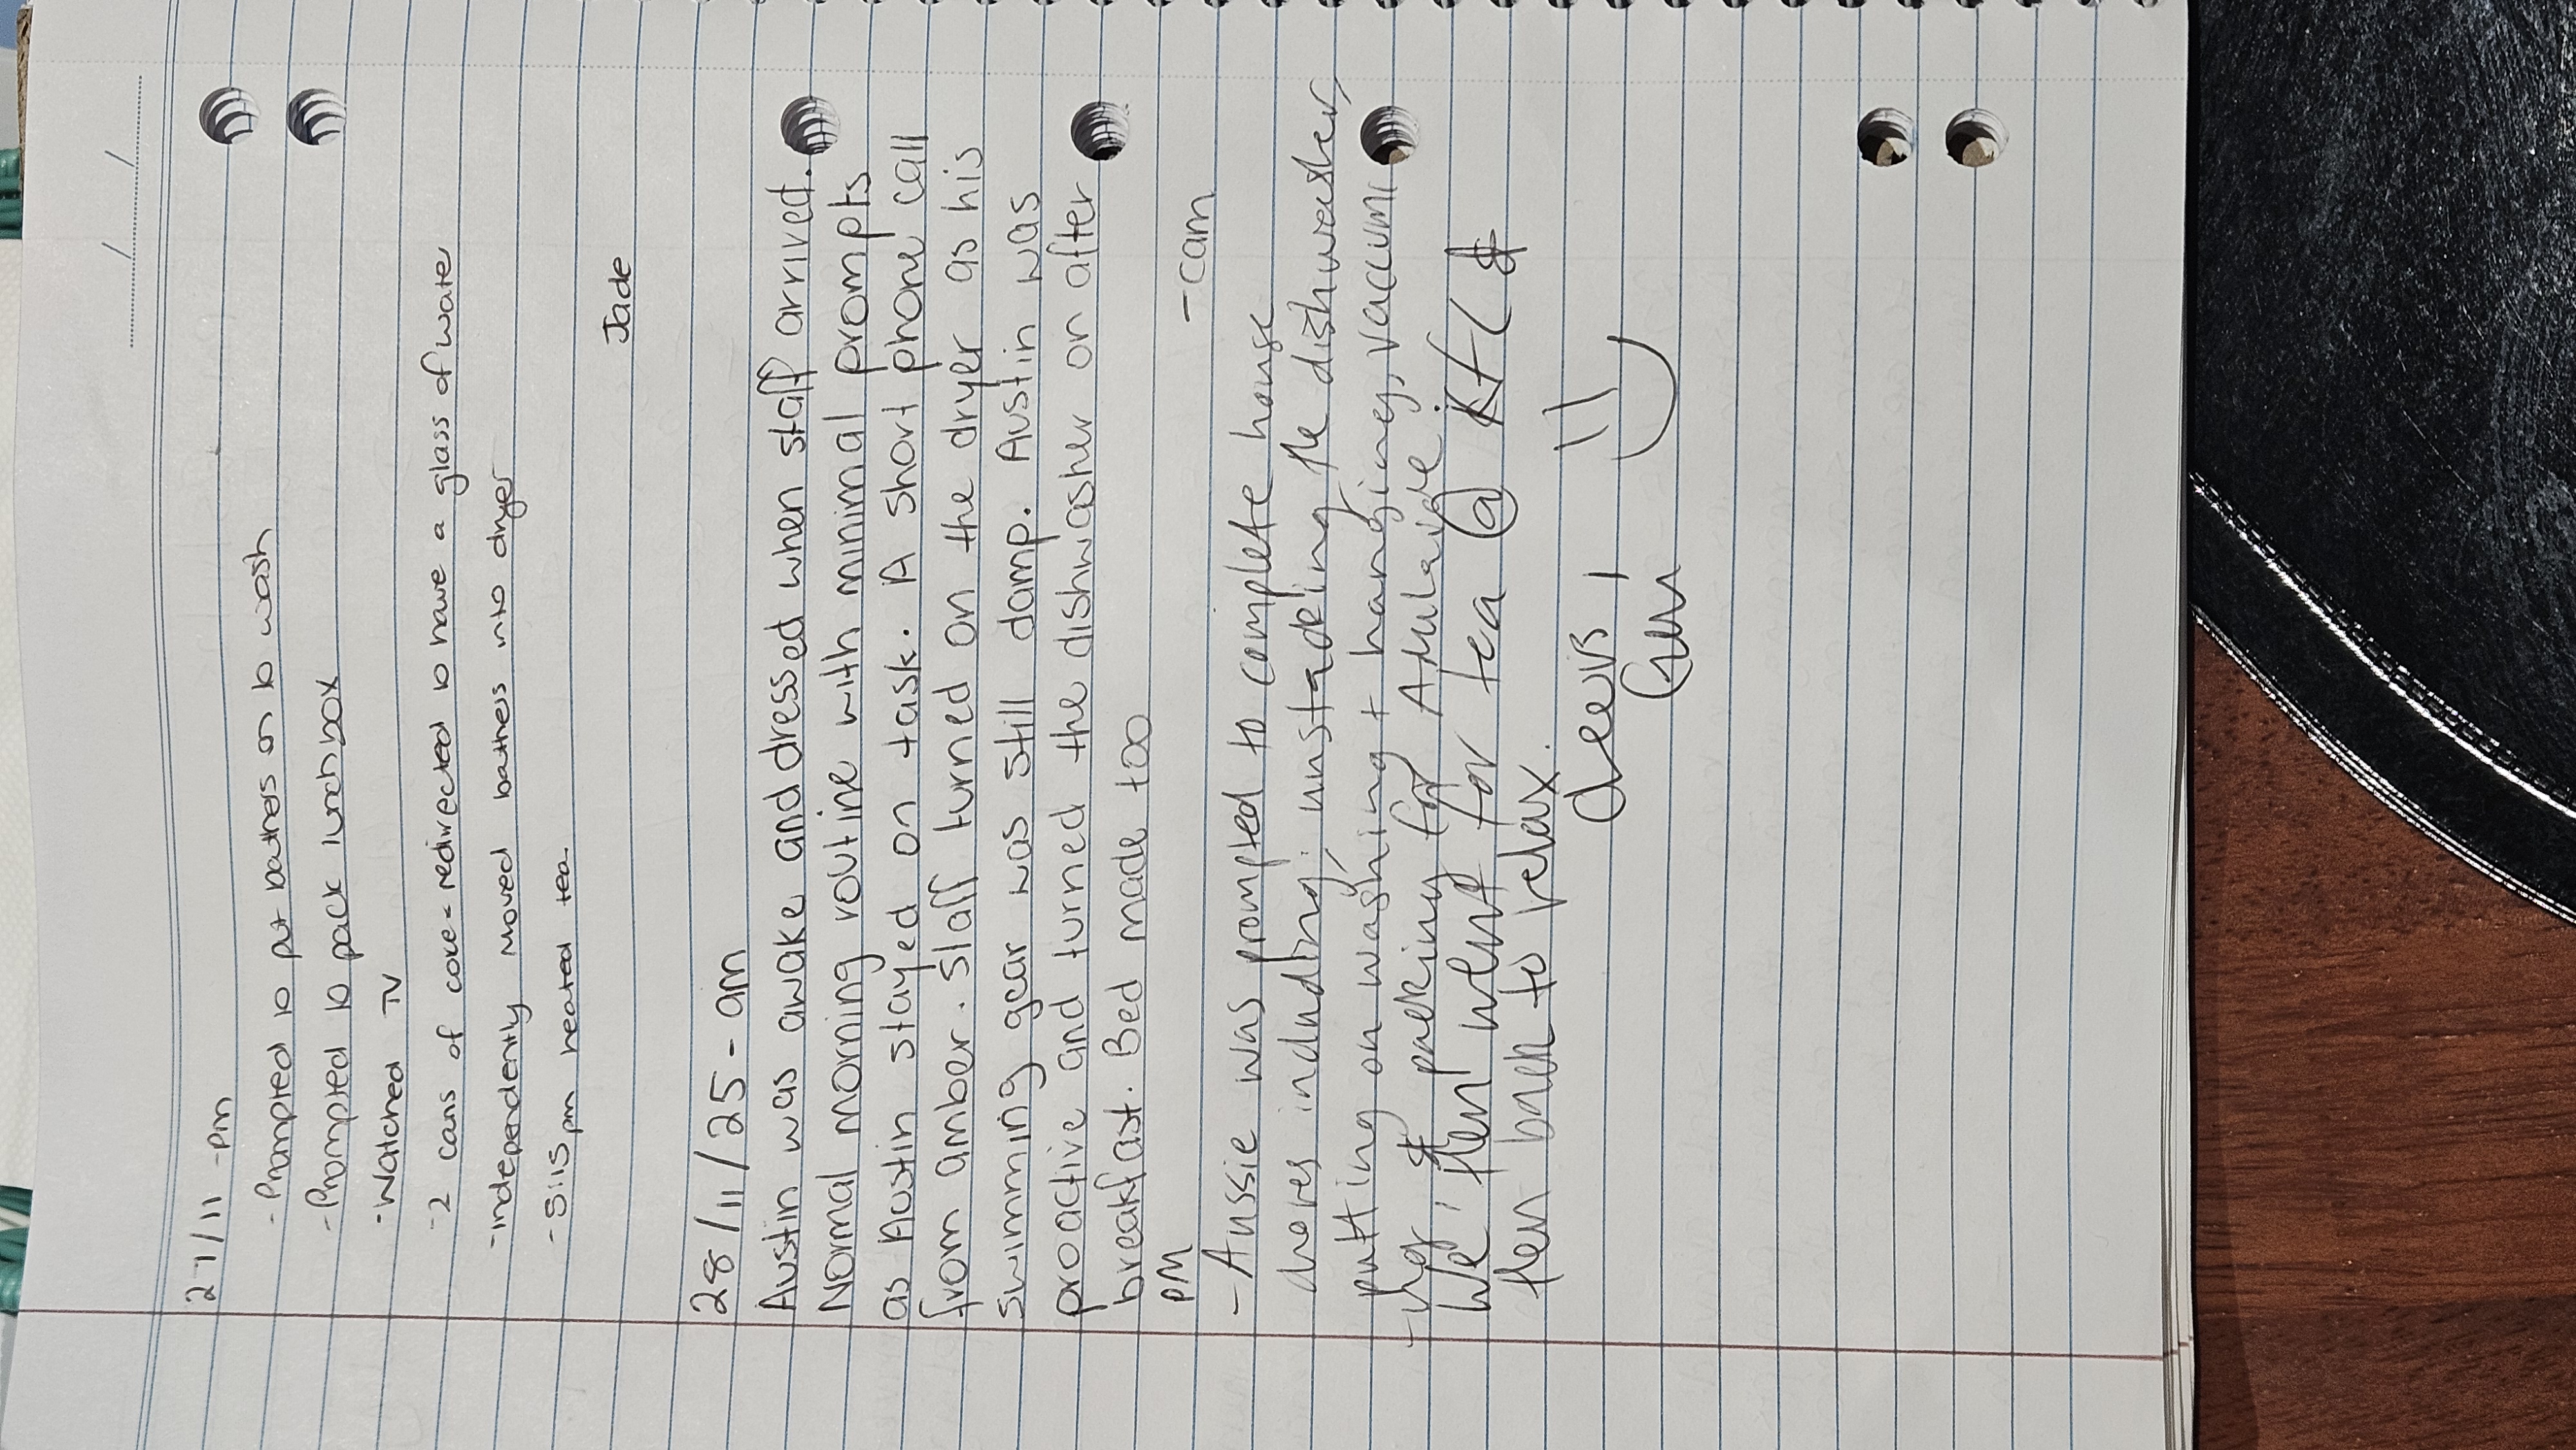 27/11 - pm
- Prompted to put bathers on to wash
- Prompted to pack lunchbox
- Watched TV
- 2 cans of coke - redirected to have a glass of wate
- Independently moved bathers into dryer
- 5:15pm heated tea
Jade
28/11/25 - am
Austin was awake and dressed when staff arrived.
Normal morning routine with minimal prompts
as Austin stayed on task. A short phone call
from amber. Staff turned on the dryer as his
swimming gear was still damp. Austin was
proactive and turned the dishwasher on after
breakfast. Bed made too
- cam
PM
- Aussie was prompted to complete house
chores including; unstacking the dishwasher,
putting on washing + hanging, vacuumi
-ng, & packing for
We then went for tea @ KFC &
then back to relax.